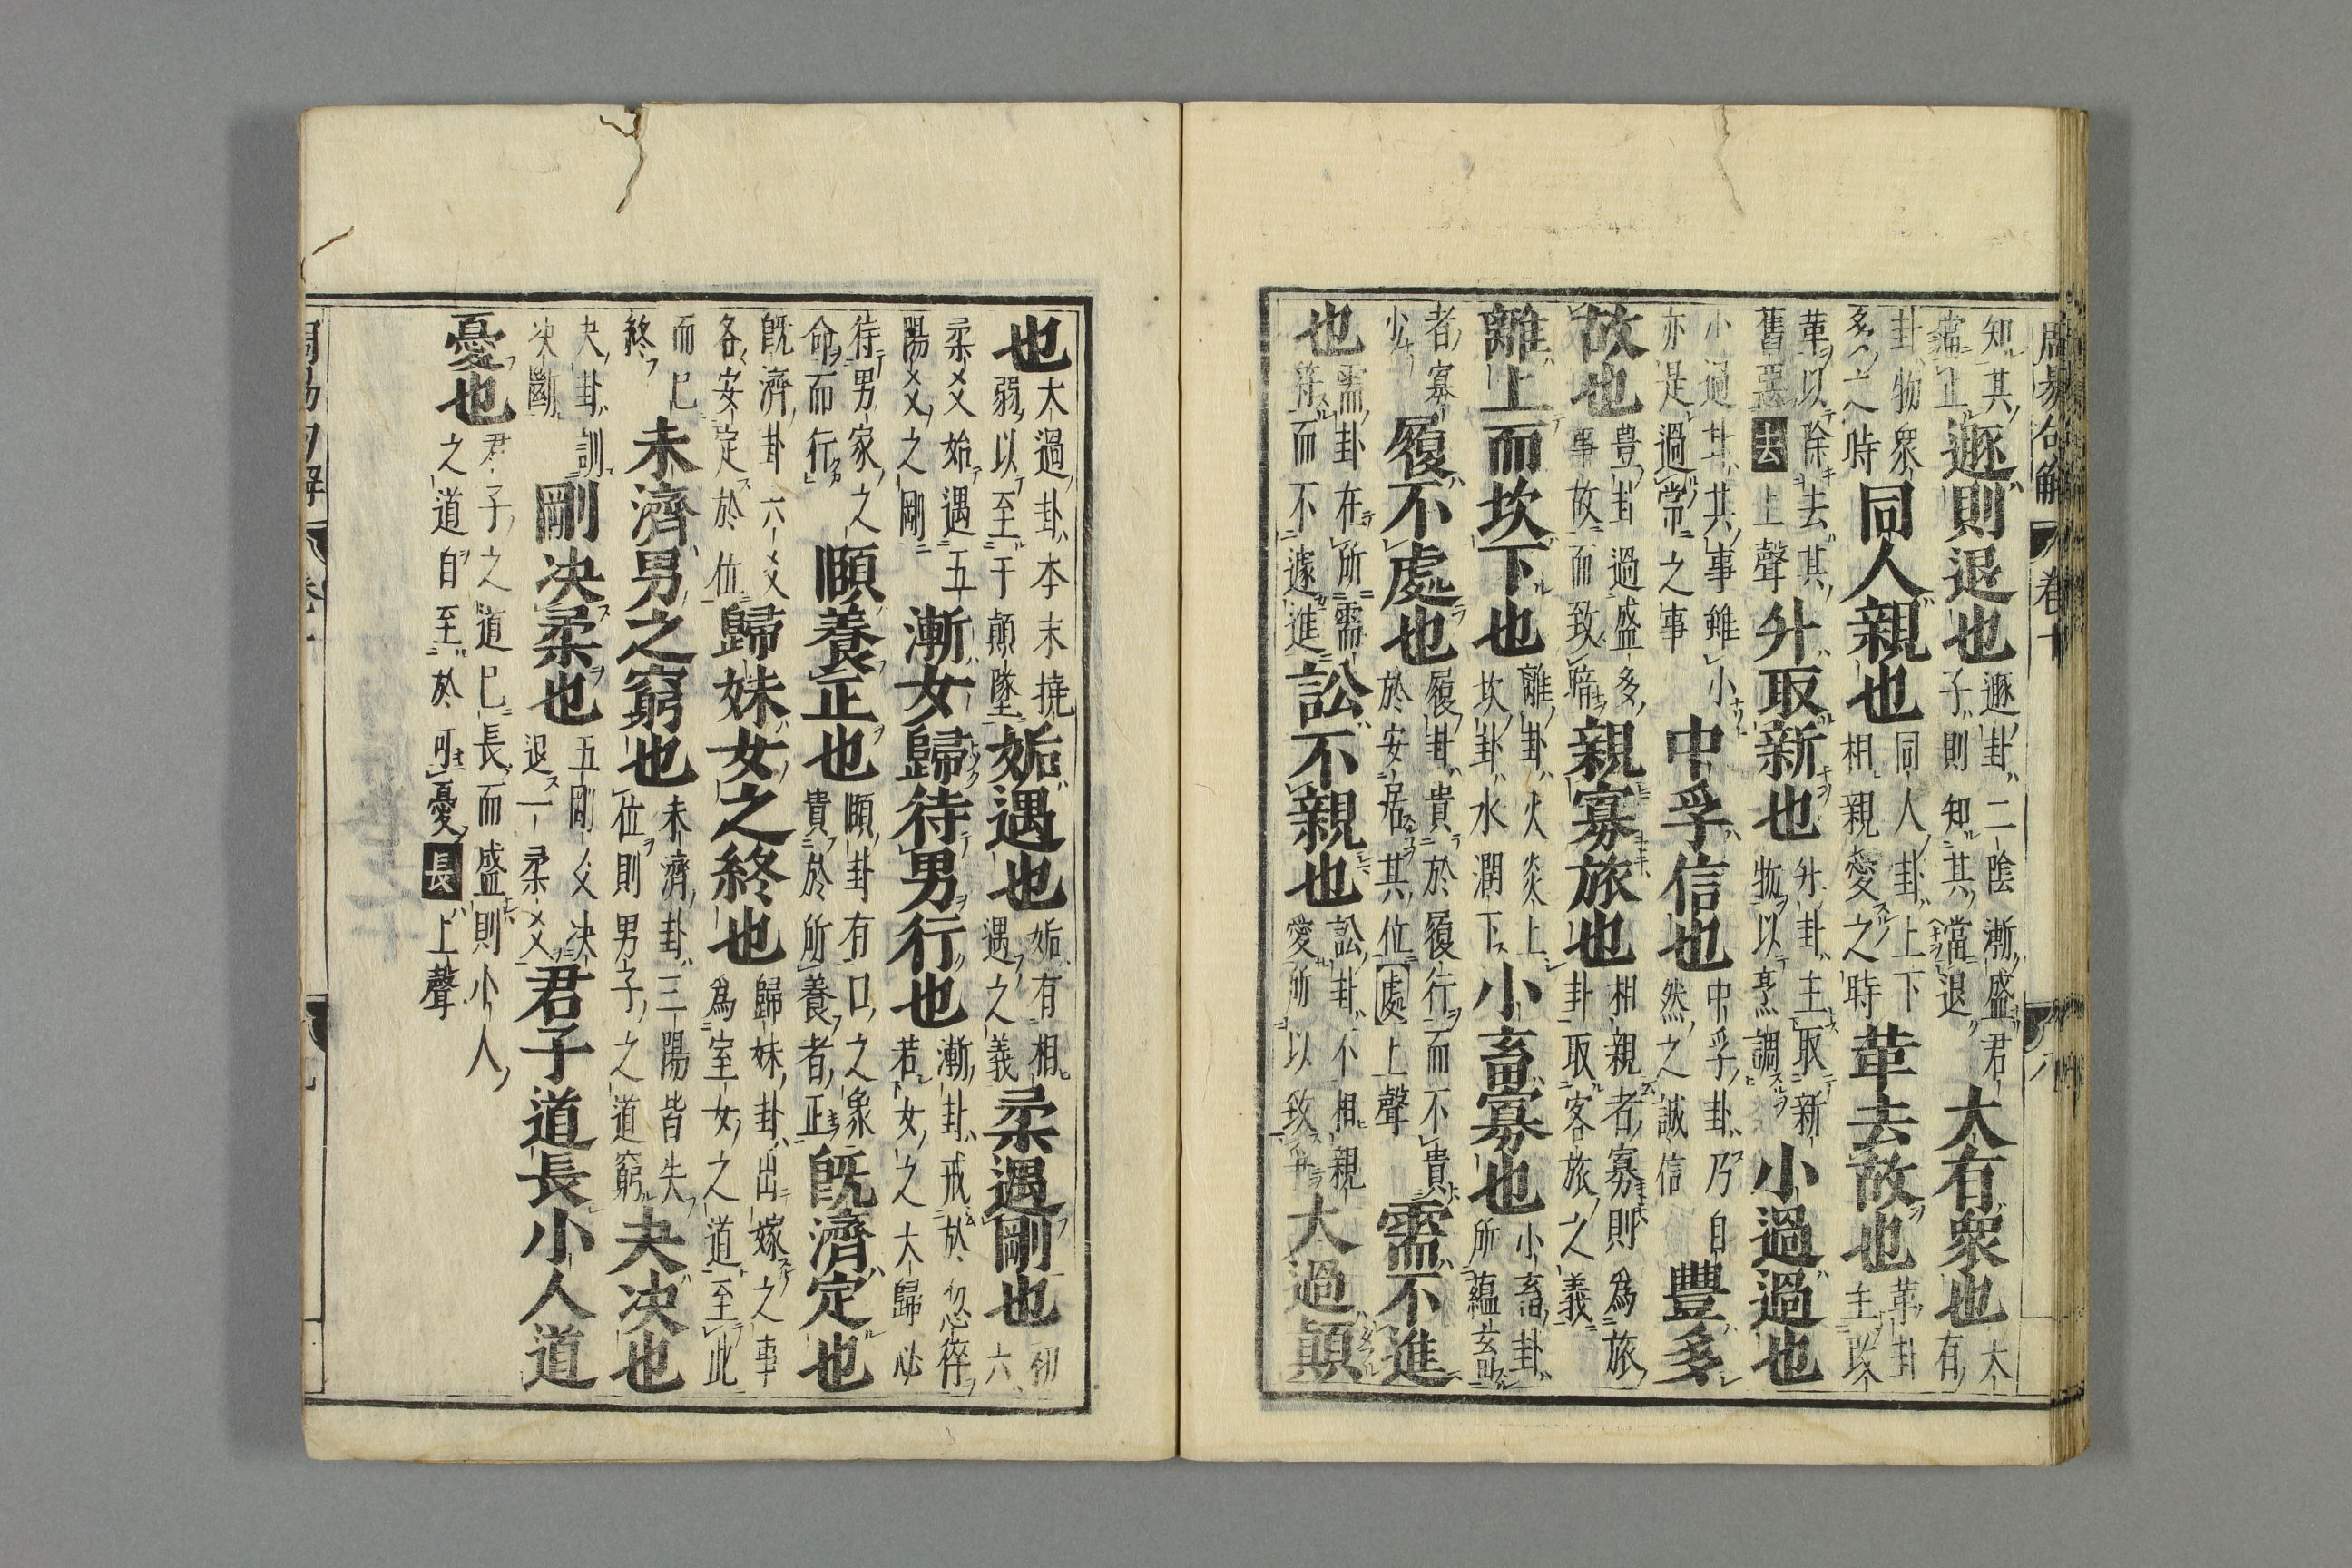 周易句解 卷十 八
知其當正遯則退也遯卦二陰漸盛君子則知其當退大有衆也大有
卦物衆多之時同人親也同人卦上下相親愛之時革去故也革卦主改
革以除去其舊惡去上聲升取新也升卦主取新物以烹調小過過也
小過卦其事雖小亦是過常之事中孚信也中孚卦乃自然之誠信豐多
故也豊卦過盛多事故而致暗親寡旅也相親者寡則為旅卦取客旅之義
離上而坎下也離卦火炎上坎卦水潤下小畜寡也小畜卦所蘊
者寡少履不處也履卦貴於履行而不貴於安居其位處上聲需不進
也需卦在所需符而不遽進訟不親也訟卦不相親愛所以致訟大過顛
也大過卦本末撓弱以至于顛墜姤遇也姤有相遇之義柔遇剛也初六
柔爻始遇五陽爻之剛漸女歸待男行也漸卦戒於忽卒若女之大歸必
待男家之命而行頤養正也頤卦有口之象貴於所養者正既濟定也
既濟卦六爻各安定於位歸妹女之終也歸妹卦出嫁之事為室女之道至此
而已終未濟男之窮也未濟卦三陽皆失位則男子之道窮夬決也
夬卦訓决斷剛決柔也五剛爻决退一柔爻君子道長小人道
憂也君子之道已長而盛則小人之道自至於可憂長上聲
周易句解 卷十